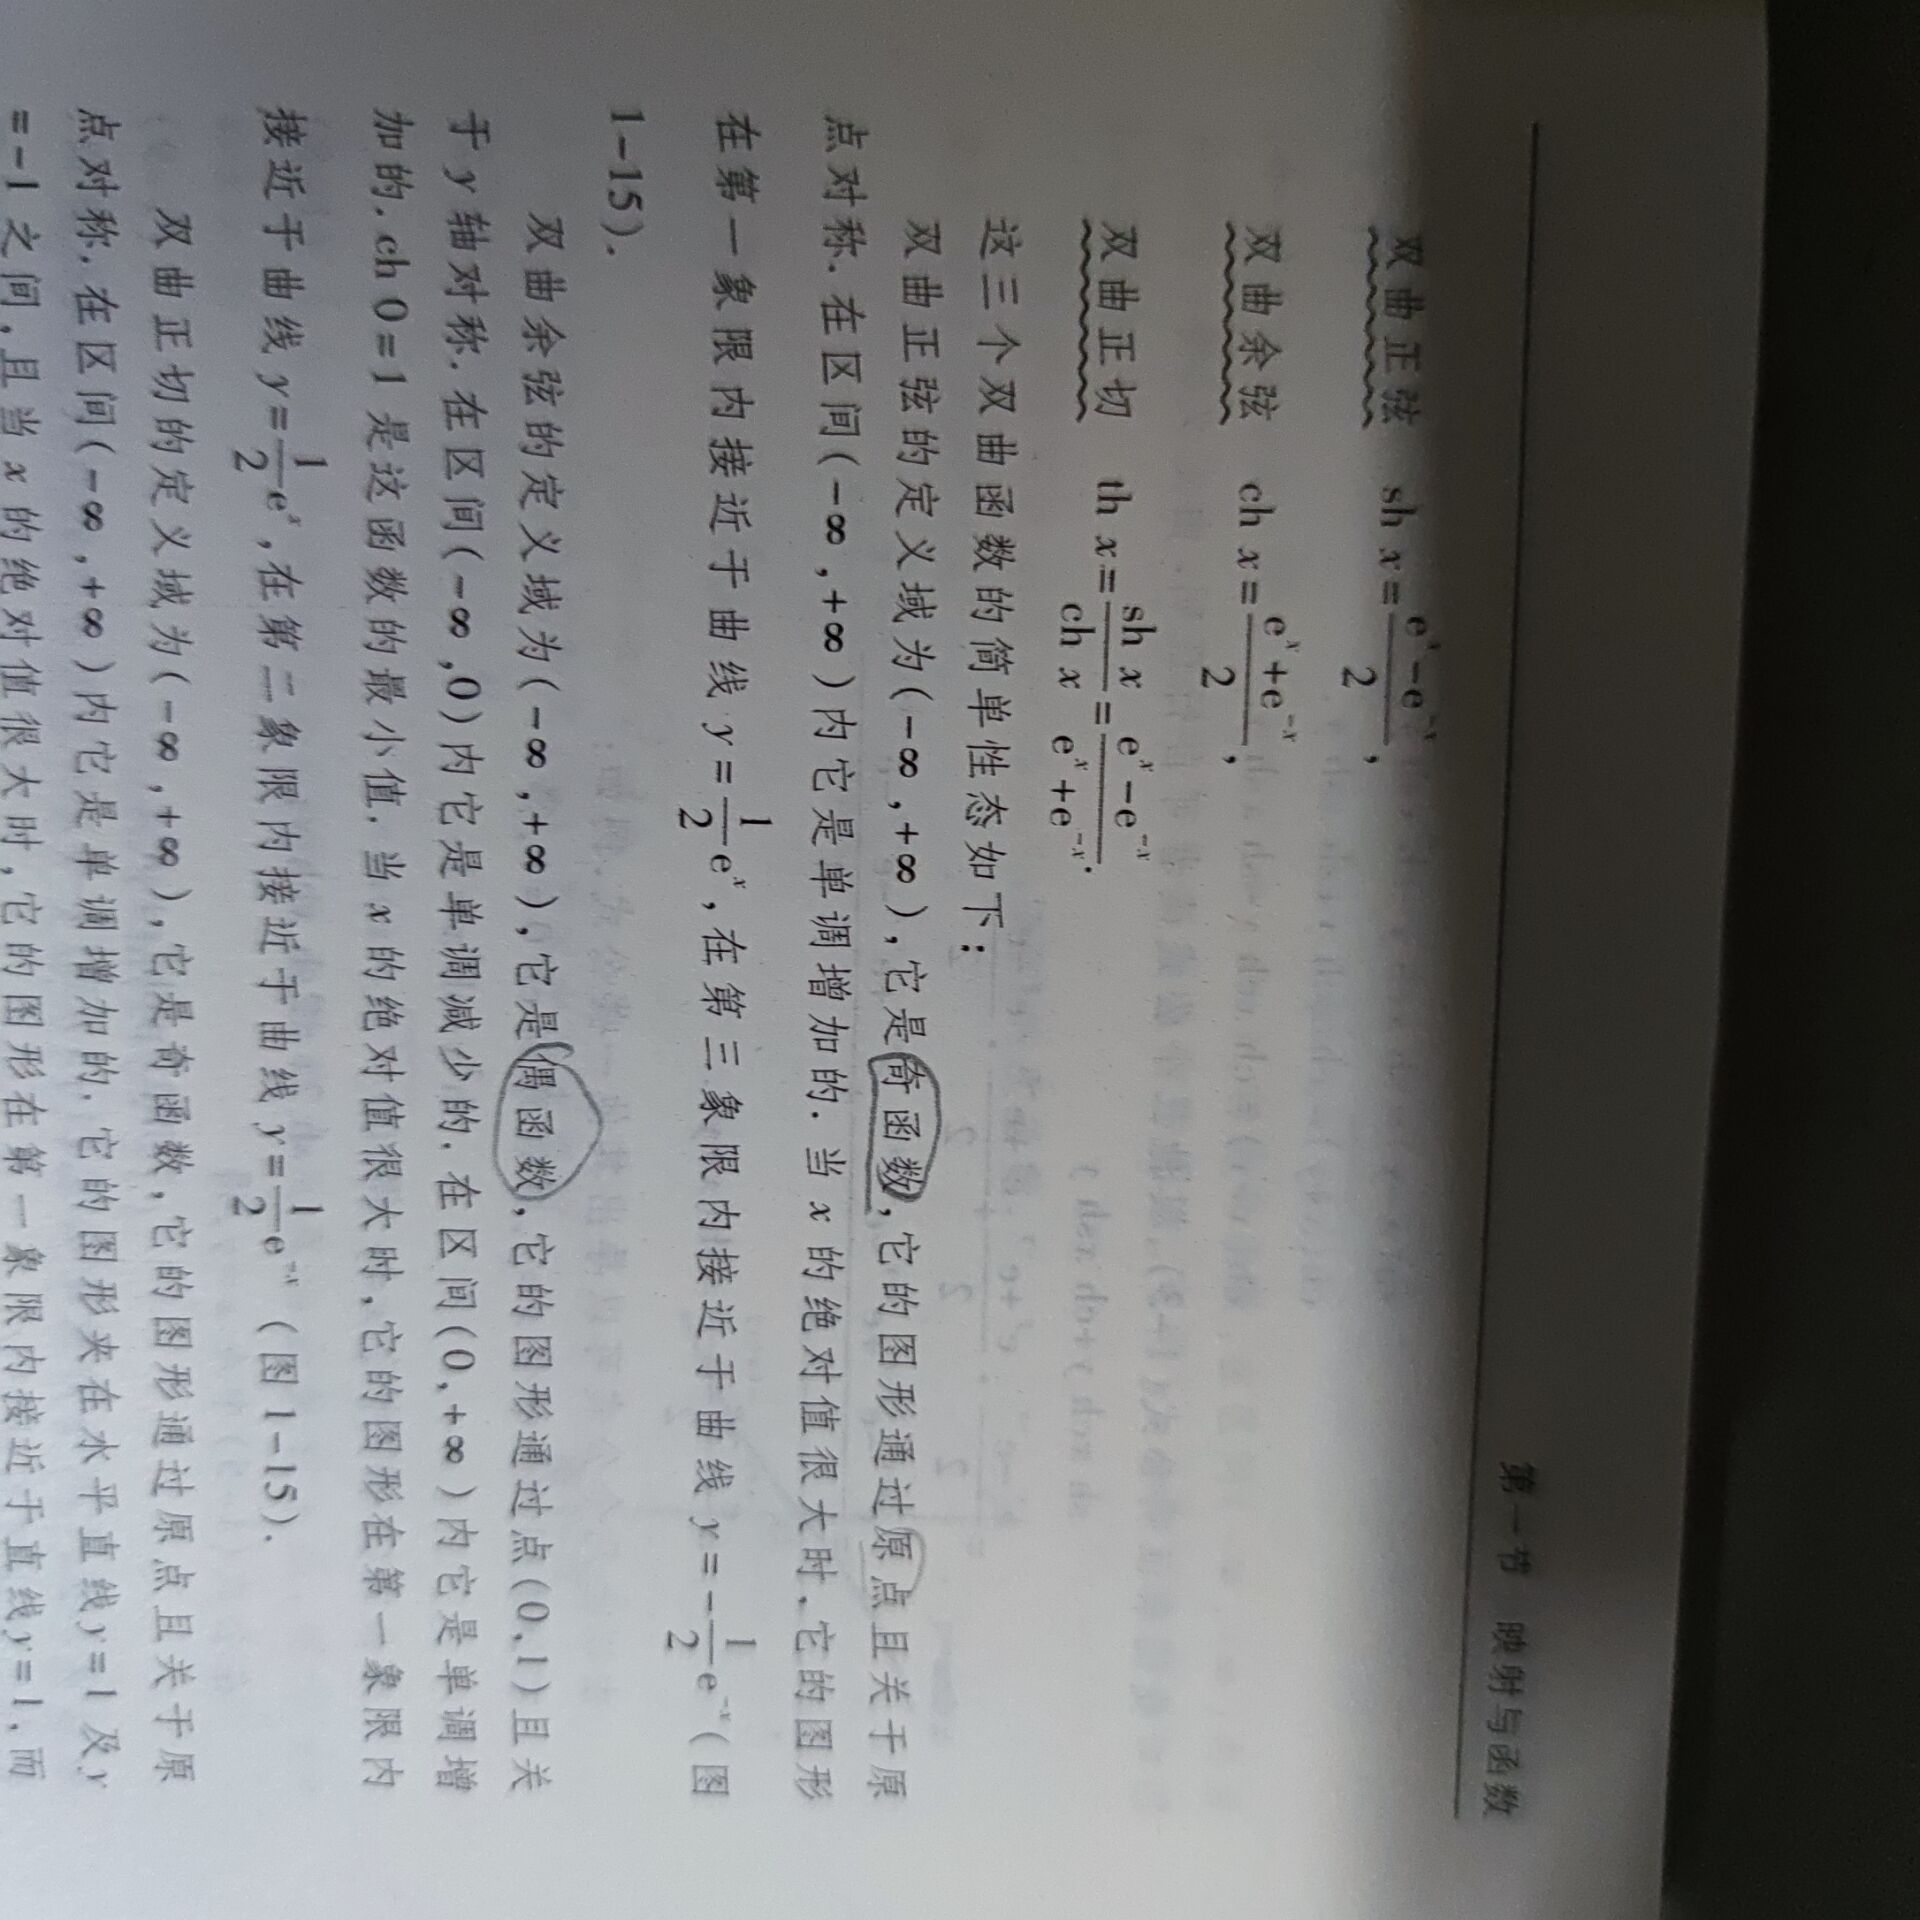 第一节 映射与函数
双曲正弦 sh x=\frac{e^x-e^{-x}}{2},
双曲余弦 ch x=\frac{e^x+e^{-x}}{2},
双曲正切 th x=\frac{sh x}{ch x}=\frac{e^x-e^{-x}}{e^x+e^{-x}}.
这三个双曲函数的简单性态如下:
双曲正弦的定义域为(-∞,+∞),它是奇函数,它的图形通过原点且关于原
点对称.在区间(-∞,+∞)内它是单调增加的.当 x 的绝对值很大时,它的图形
在第一象限内接近于曲线 y=\frac{1}{2}e^x,在第三象限内接近于曲线 y=-\frac{1}{2}e^{-x}(图
1-15).
双曲余弦的定义域为(-∞,+∞),它是偶函数,它的图形通过点(0,1)且关
于 y 轴对称.在区间(-∞,0)内它是单调减少的.在区间(0,+∞)内它是单调增
加的.ch 0=1 是这函数的最小值.当 x 的绝对值很大时,它的图形在第一象限内
接近于曲线 y=\frac{1}{2}e^x,在第二象限内接近于曲线 y=\frac{1}{2}e^{-x}(图 1-15).
双曲正切的定义域为(-∞,+∞),它是奇函数,它的图形通过原点且关于原
点对称.在区间(-∞,+∞)内它是单调增加的.它的图形夹在水平直线 y=1 及 y
=-1 之间,且当 x 的绝对值很大时,它的图形在第一象限内接近于直线 y=1,而